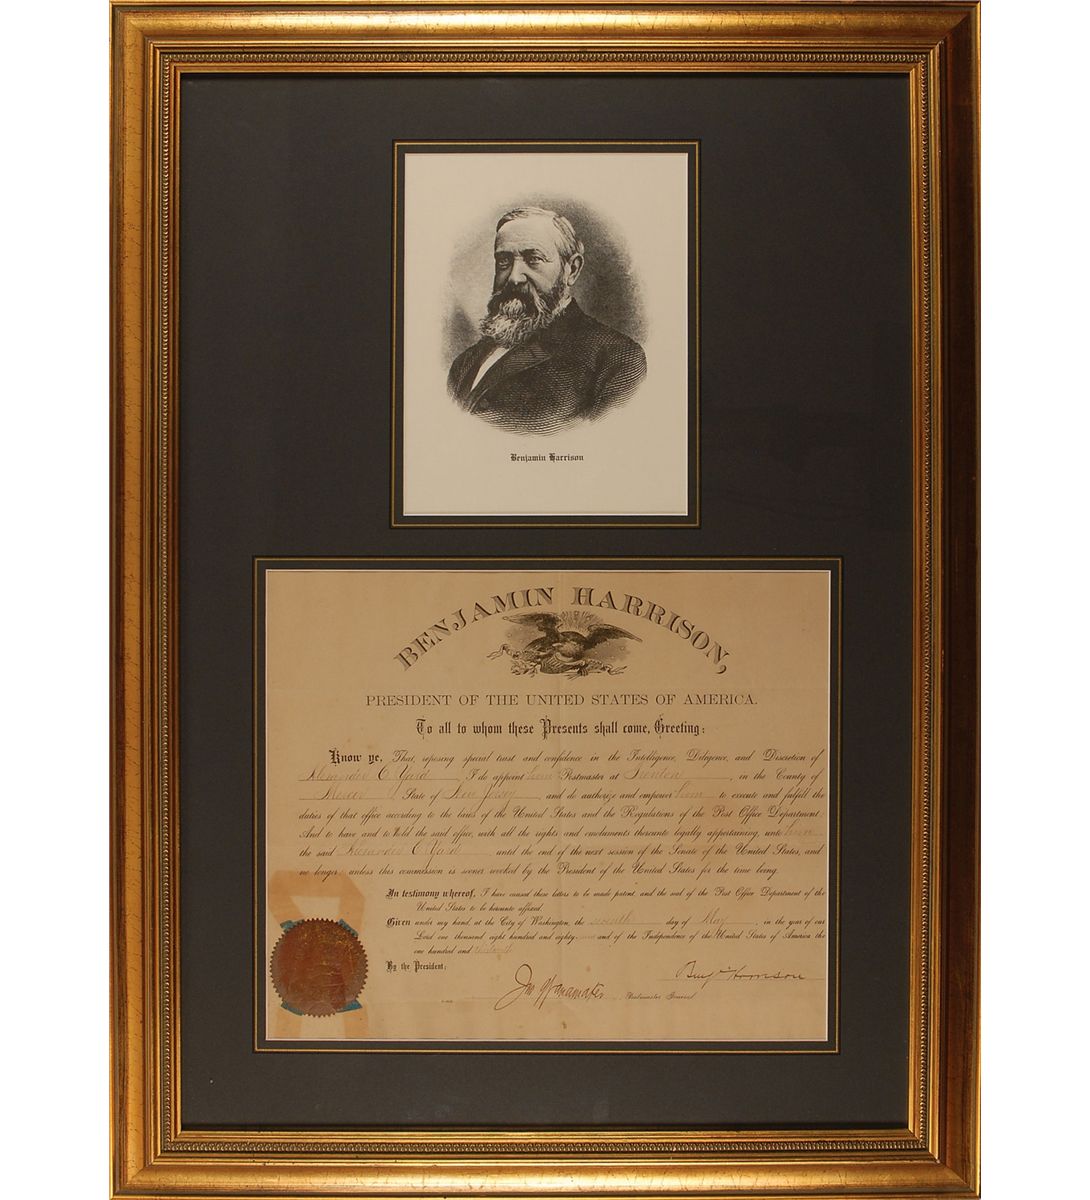 Benjamin Harrison
BENJAMIN HARRISON,
PRESIDENT OF THE UNITED STATES OF AMERICA.
To all to whom these Presents shall come, Greeting:
Know ye, That, reposing special trust and confidence in the Intelligence, Diligence, and Discretion of
Alexander C Yard I do appoint him Postmaster at Trenton, in the County of
Mercer State of New Jersey and do authorize and empower him to execute and fulfill the
duties of that office according to the laws of the United States and the Regulations of the Post Office Department.
And to have and to Hold the said office, with all the rights and emoluments thereunto legally appertaining, unto him
the said Alexander C Yard until the end of the next session of the Senate of the United States, and
no longer; unless this commission is sooner revoked by the President of the United States for the time being.
In testimony whereof, I have caused these letters to be made patent, and the seal of the Post Office Department of the
United States to be hereunto affixed.
Given under my hand, at the City of Washington, the seventh day of May, in the year of our
Lord one thousand eight hundred and eighty-nine and of the Independence of the United States of America the
one hundred and thirteenth
By the President:
Benj Harrison
Jno Wanamaker Postmaster General